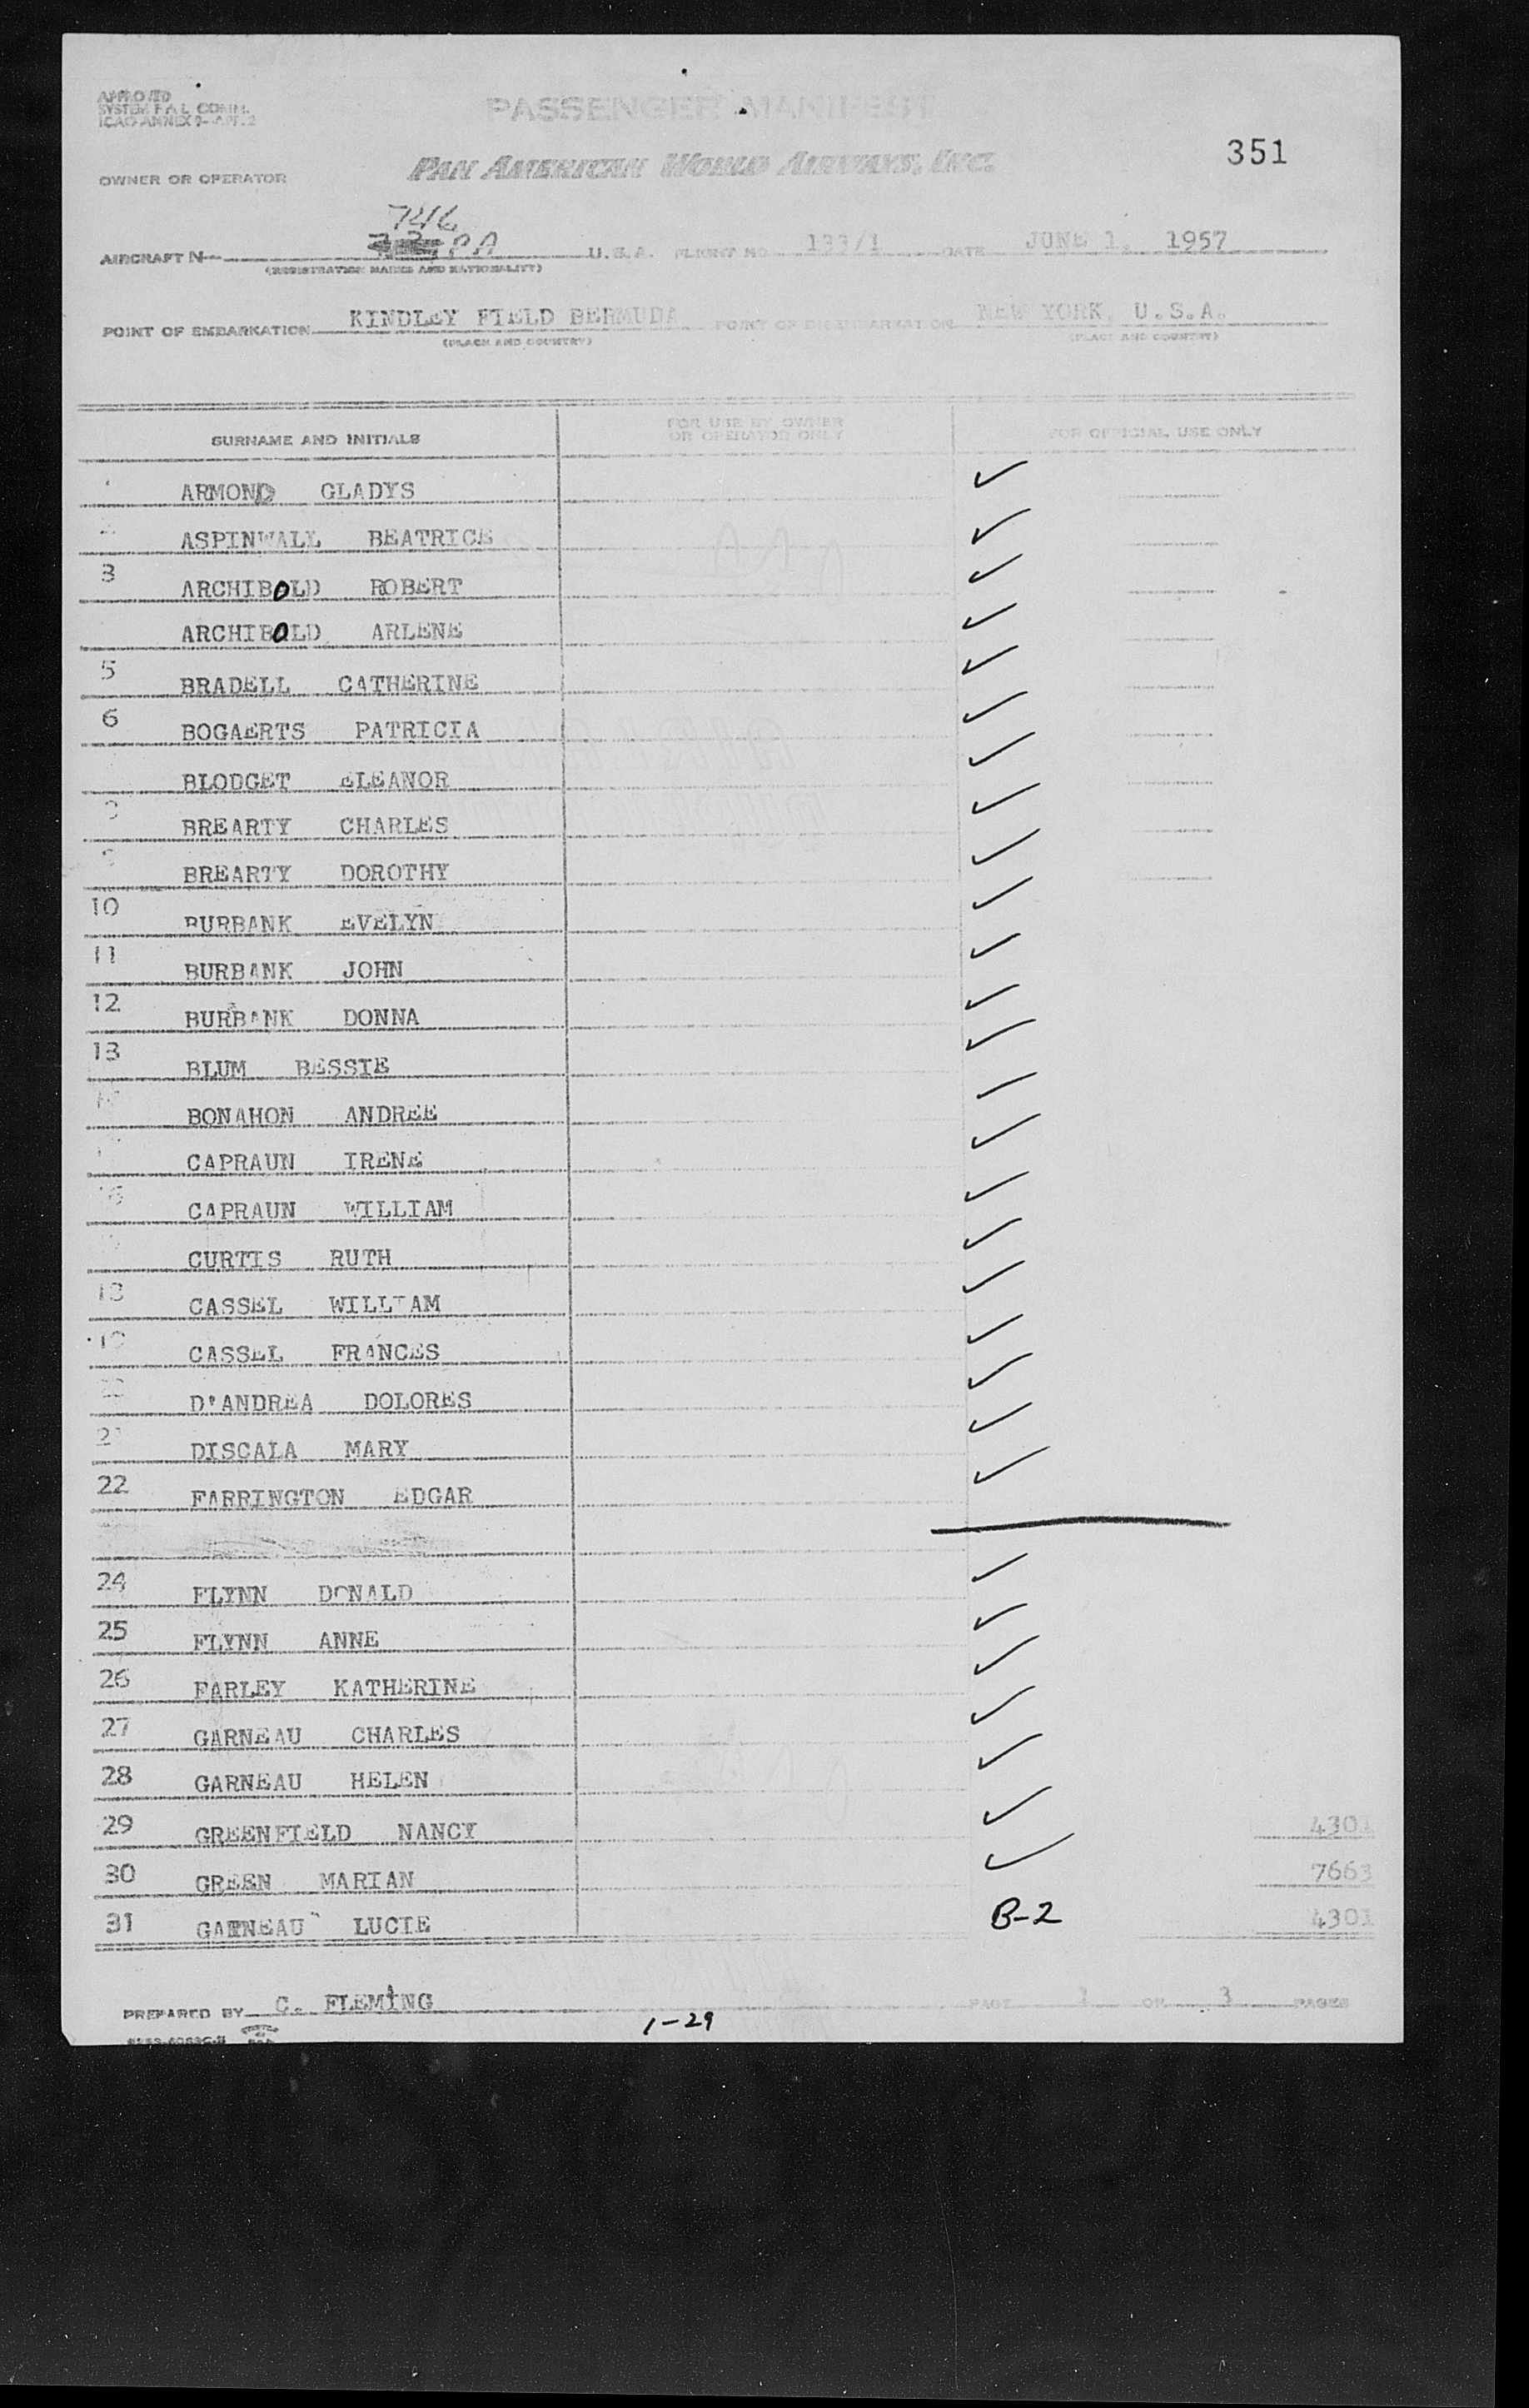 APPROVED
SYSTEM F.A.L. COMM.
ICAO ANNEX 9
PASSENGER MANIFEST
351
OWNER OR OPERATOR PAN AMERICAN WORLD AIRWAYS, INC.
746
AIRCRAFT N PA U.S.A. FLIGHT NO 133/1 DATE JUNE 1, 1957
(REGISTRATION MARKS AND NATIONALITY)
POINT OF EMBARKATION KINDLEY FIELD BERMUDA POINT OF DISEMBARKATION NEW YORK, U.S.A.
(PLACE AND COUNTRY) (PLACE AND COUNTRY)
SURNAME AND INITIALS FOR USE BY OWNER OR OPERATOR ONLY FOR OFFICIAL USE ONLY
ARMOND GLADYS ✓
ASPINWALL BEATRICE ✓
3 ARCHIBOLD ROBERT ✓
ARCHIBOLD ARLENE ✓
5 BRADELL CATHERINE ✓
6 BOGAERTS PATRICIA ✓
BLODGET ELEANOR ✓
BREARTY CHARLES ✓
BREARTY DOROTHY ✓
10 BURBANK EVELYN ✓
11 BURBANK JOHN ✓
12 BURBANK DONNA ✓
13 BLUM BESSIE ✓
BONAHON ANDREE ✓
CAPRAUN IRENE ✓
16 CAPRAUN WILLIAM ✓
CURTIS RUTH ✓
18 CASSEL WILLIAM ✓
19 CASSEL FRANCES ✓
D'ANDREA DOLORES ✓
21 DISCALA MARY ✓
22 FARRINGTON EDGAR ✓
24 FLYNN DONALD ✓
25 FLYNN ANNE ✓
26 FARLEY KATHERINE ✓
27 GARNEAU CHARLES ✓
28 GARNEAU HELEN ✓
29 GREENFIELD NANCY ✓ 4301
30 GREEN MARIAN ✓ 7663
31 GARNEAU LUCIE B-2 4301
PREPARED BY C. FLEMING PAGE 1 OF 3 PAGES
1-29